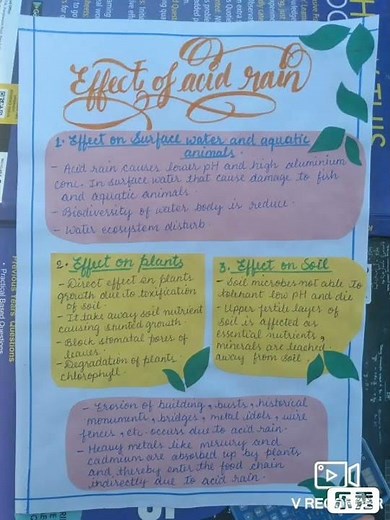 Effect of acid rain
1. Effect on Surface water and aquatic
animals.
- Acid rain causes lower pH and high aluminium
conc. In surface water that cause damage to fish
and aquatic animals
- Biodiversity of water body is reduce.
- Water ecosystem disturb
2. Effect on plants
- Direct effect on plants
growth due to toxification
of soil
- It take away soil nutrient
causing stunted growth
- Block stomatal pores of
leaves.
- Degradation of plants
chlorophyll.
3. Effect on Soil
- Soil microbes not able to
tolerant low pH and die
- Upper fertile layer of
soil is affected as
essential nutrients,
minerals are leached
away from soil.
- Erosion of building, busts, historical
monuments, bridges, metal idols, wire
fences, etc. occurs due to acid rain.
- Heavy metals like mercury and
cadmium are absorbed up by plants
and thereby enter the food chain
indirectly due to acid rain.
V RECORDER
Practical Based Questions